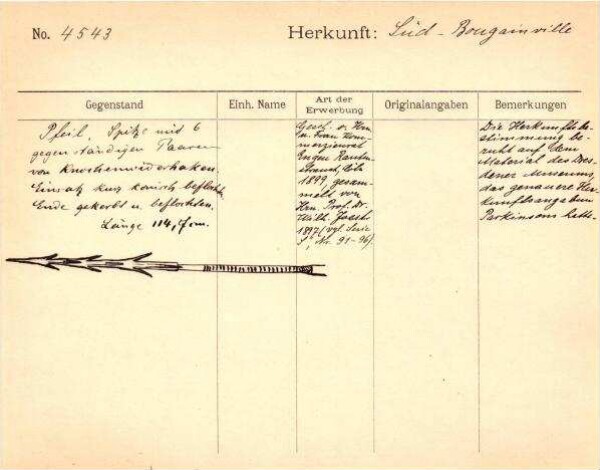 No. 4543
Herkunft: Süd-Bougainville
Gegenstand
Einh. Name
Art der
Erwerbung
Originalangaben
Bemerkungen
Pfeil, Spitze mit 6
gegenständigen Paaren
von Knochenwiederhaken.
Einsatz kurz konisch beflochten,
Ende gekerbt u. beflochten.
Länge 114, cm.
Gesch. v. Hrn
u. Frau Kom-
merzienrat
Eugen Rauten-
strauch, Cöln
1899, gesam-
melt von
Hrn. Prof. Dr.
Wilh. Joest
1897 (vgl. Serie
Nr. 91-96).
Die Herkunftsbe-
stimmung be-
ruht auf dem
Material des Dres-
dener Museums,
das genauere Her-
kunftsangaben
Parkinsons hatte.